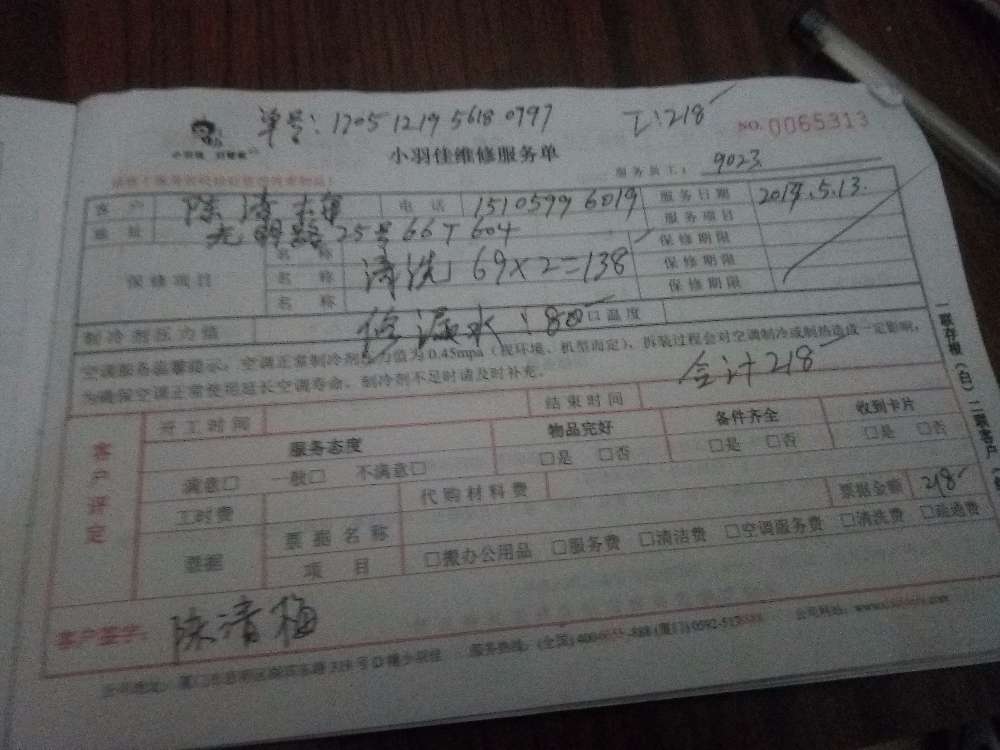 单号: 1705 1219 5618 0797 工:218
NO. 0065313
小羽佳维修服务单
服务员工: 9023
客户 陈清梅 电话 15105996019 服务日期 2017.5.13.
地址 光明路25号667 604 服务项目
保修项目 名称 保修期限
名称 清洗 69×2=138 保修期限
名称 保修期限
制冷剂压力值 修漏水:80 口温度
空调服务温馨提示:空调正常制冷剂压力值为0.45mpa(视环境、机型而定),拆装过程会对空调制冷或制热造成一定影响,
为确保空调正常使用延长空调寿命,制冷剂不足时请及时补充。
合计218
客户评定
开工时间 结束时间
服务态度 物品完好 备件齐全 收到卡片
满意□ 一般□ 不满意□ □是 □否 □是 □否 □是 □否
工时费 代购材料费 票据金额 218
票据 票据名称
项目 □搬办公用品 □服务费 □清洁费 □空调服务费 □清洗费 □疏通费
客户签字: 陈清梅
服务热线:(全国)400 -888 (厦门)0592-5 公司网站:www.
一联存根(白) 二联客户